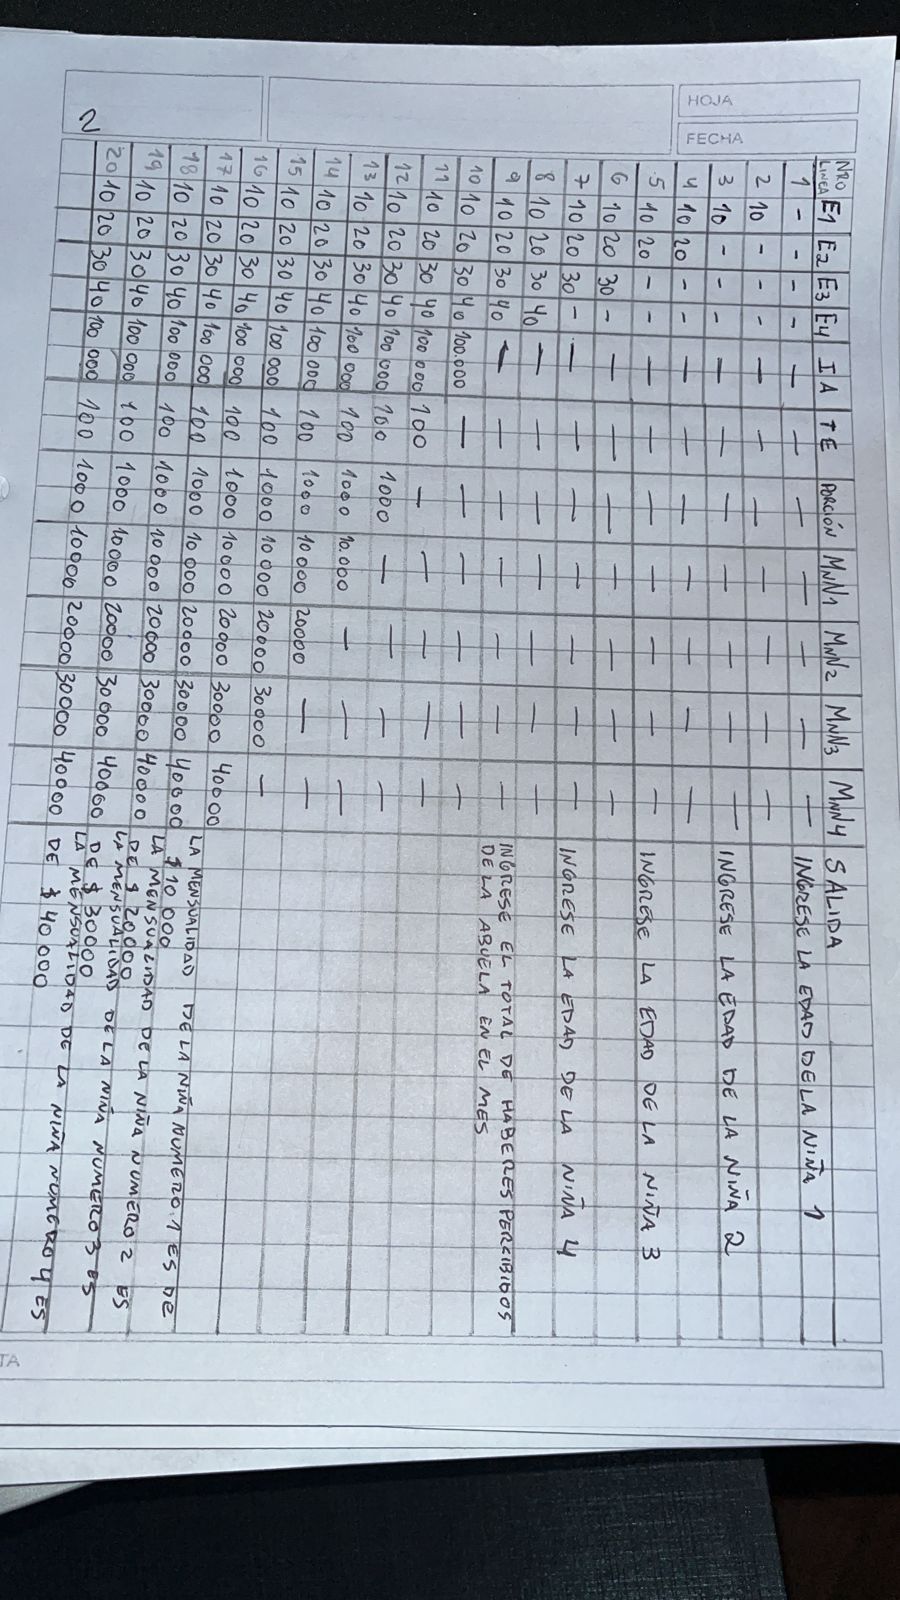 HOJA
FECHA
2
NRO LINEA E1 E2 E3 E4 IA TE PORCIÓN MNN1 MNN2 MNN3 MNN4 SALIDA
1 - - - - — — — — — — — INGRESE LA EDAD DE LA NIÑA 1
2 10 - - - — — — — — — —
3 10 - - - — — — — — — — INGRESE LA EDAD DE LA NIÑA 2
4 10 20 - - — — — — — — —
5 10 20 - - — — — — — — — INGRESE LA EDAD DE LA NIÑA 3
6 10 20 30 - — — — — — — —
7 10 20 30 - — — — — — — — INGRESE LA EDAD DE LA NIÑA 4
8 10 20 30 40 — — — — — — —
9 10 20 30 40 — — — — — — — INGRESE EL TOTAL DE HABERES PERCIBIDOS
DE LA ABUELA EN EL MES
10 10 20 30 40 100.000 — — — — — —
11 10 20 30 40 100 000 100 — — — — —
12 10 20 30 40 100 000 100 1000 — — — —
13 10 20 30 40 100 000 100 1000 10.000 — — —
14 10 20 30 40 100 000 100 1000 10000 20000 — —
15 10 20 30 40 100 000 100 1000 10 000 20000 30000 —
16 10 20 30 40 100 000 100 1000 10000 20000 30000 40000
17 10 20 30 40 100 000 100 1000 10 000 20000 30000 40000 LA MENSUALIDAD DE LA NIÑA NUMERO 1 ES DE
$ 10 000
18 10 20 30 40 100 000 100 1000 10 000 20000 30000 40000 LA MENSUALIDAD DE LA NIÑA NUMERO 2 ES
DE $ 20000
19 10 20 30 40 100 000 100 1000 10000 20000 30000 40000 LA MENSUALIDAD DE LA NIÑA NUMERO 3 ES
DE $ 30000
20 10 20 30 40 100 000 100 1000 10000 20000 30000 40000 LA MENSUALIDAD DE LA NIÑA NUMERO 4 ES
DE $ 40 000
TA